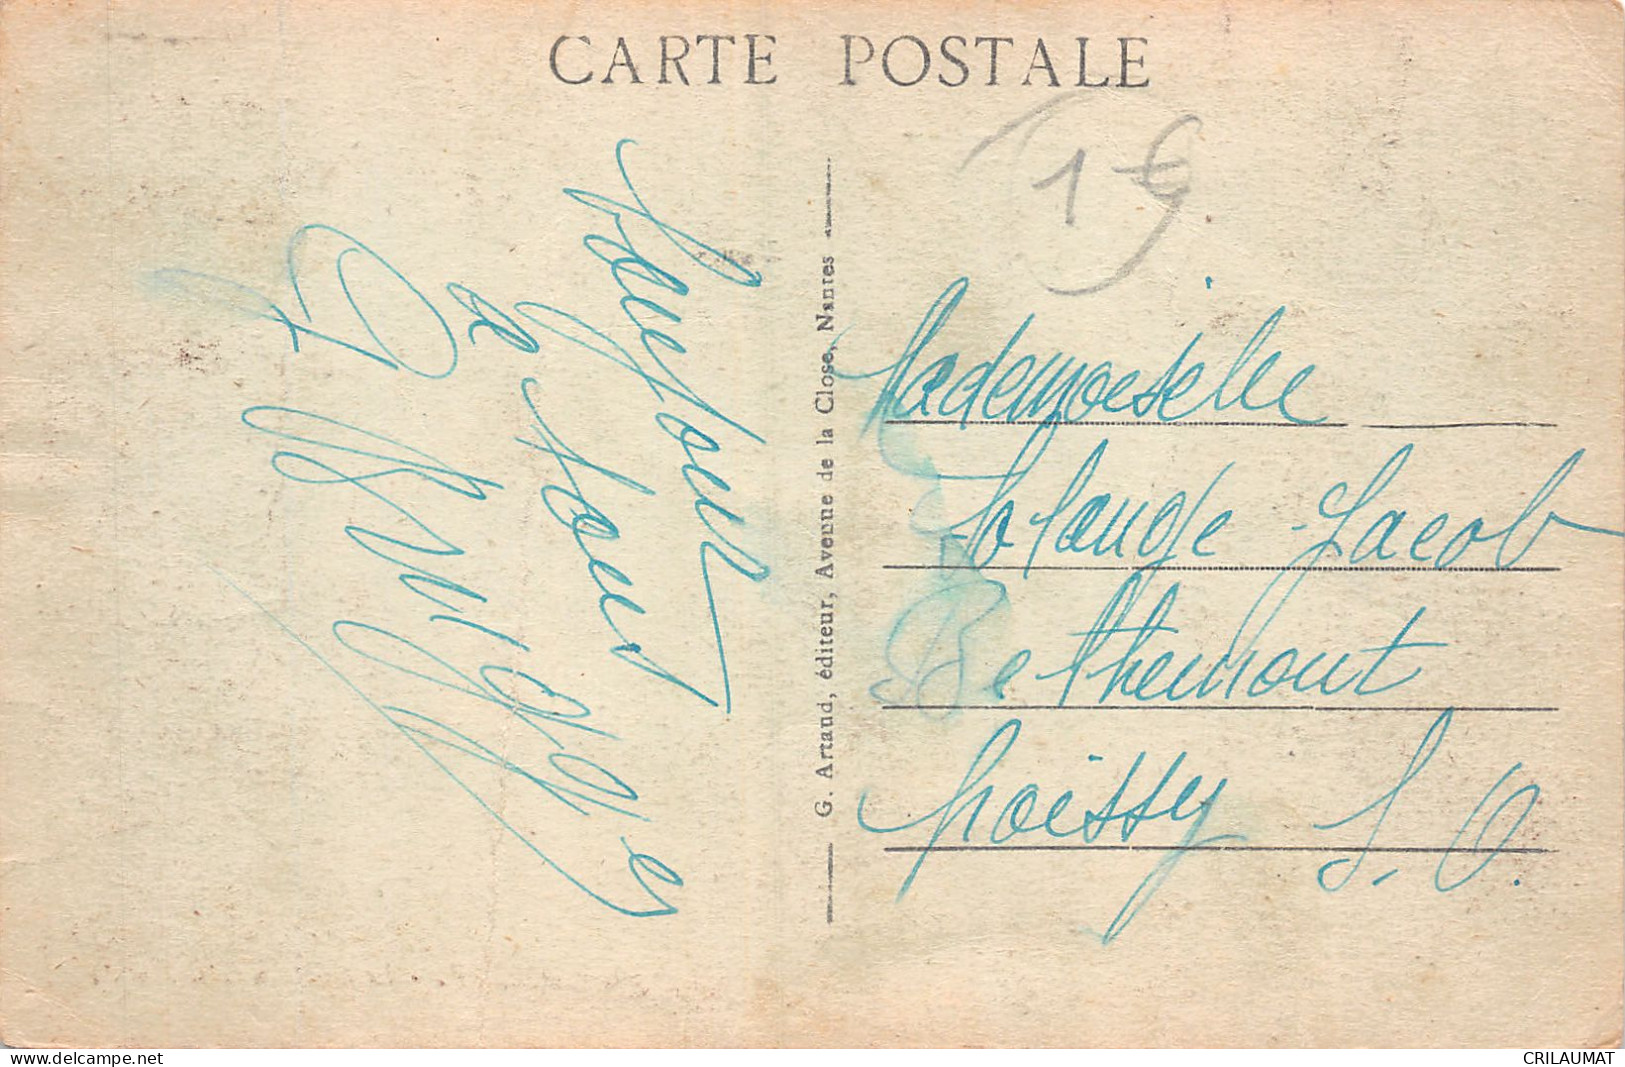 CARTE POSTALE
1€
Bonjour
de tous
G. Artaud, éditeur, Avenue de la Close, Nantes
Mademoiselle
Solange Jacob
Bethemont
Poissy S. O.
www.delcampe.net
CRILAUMAT